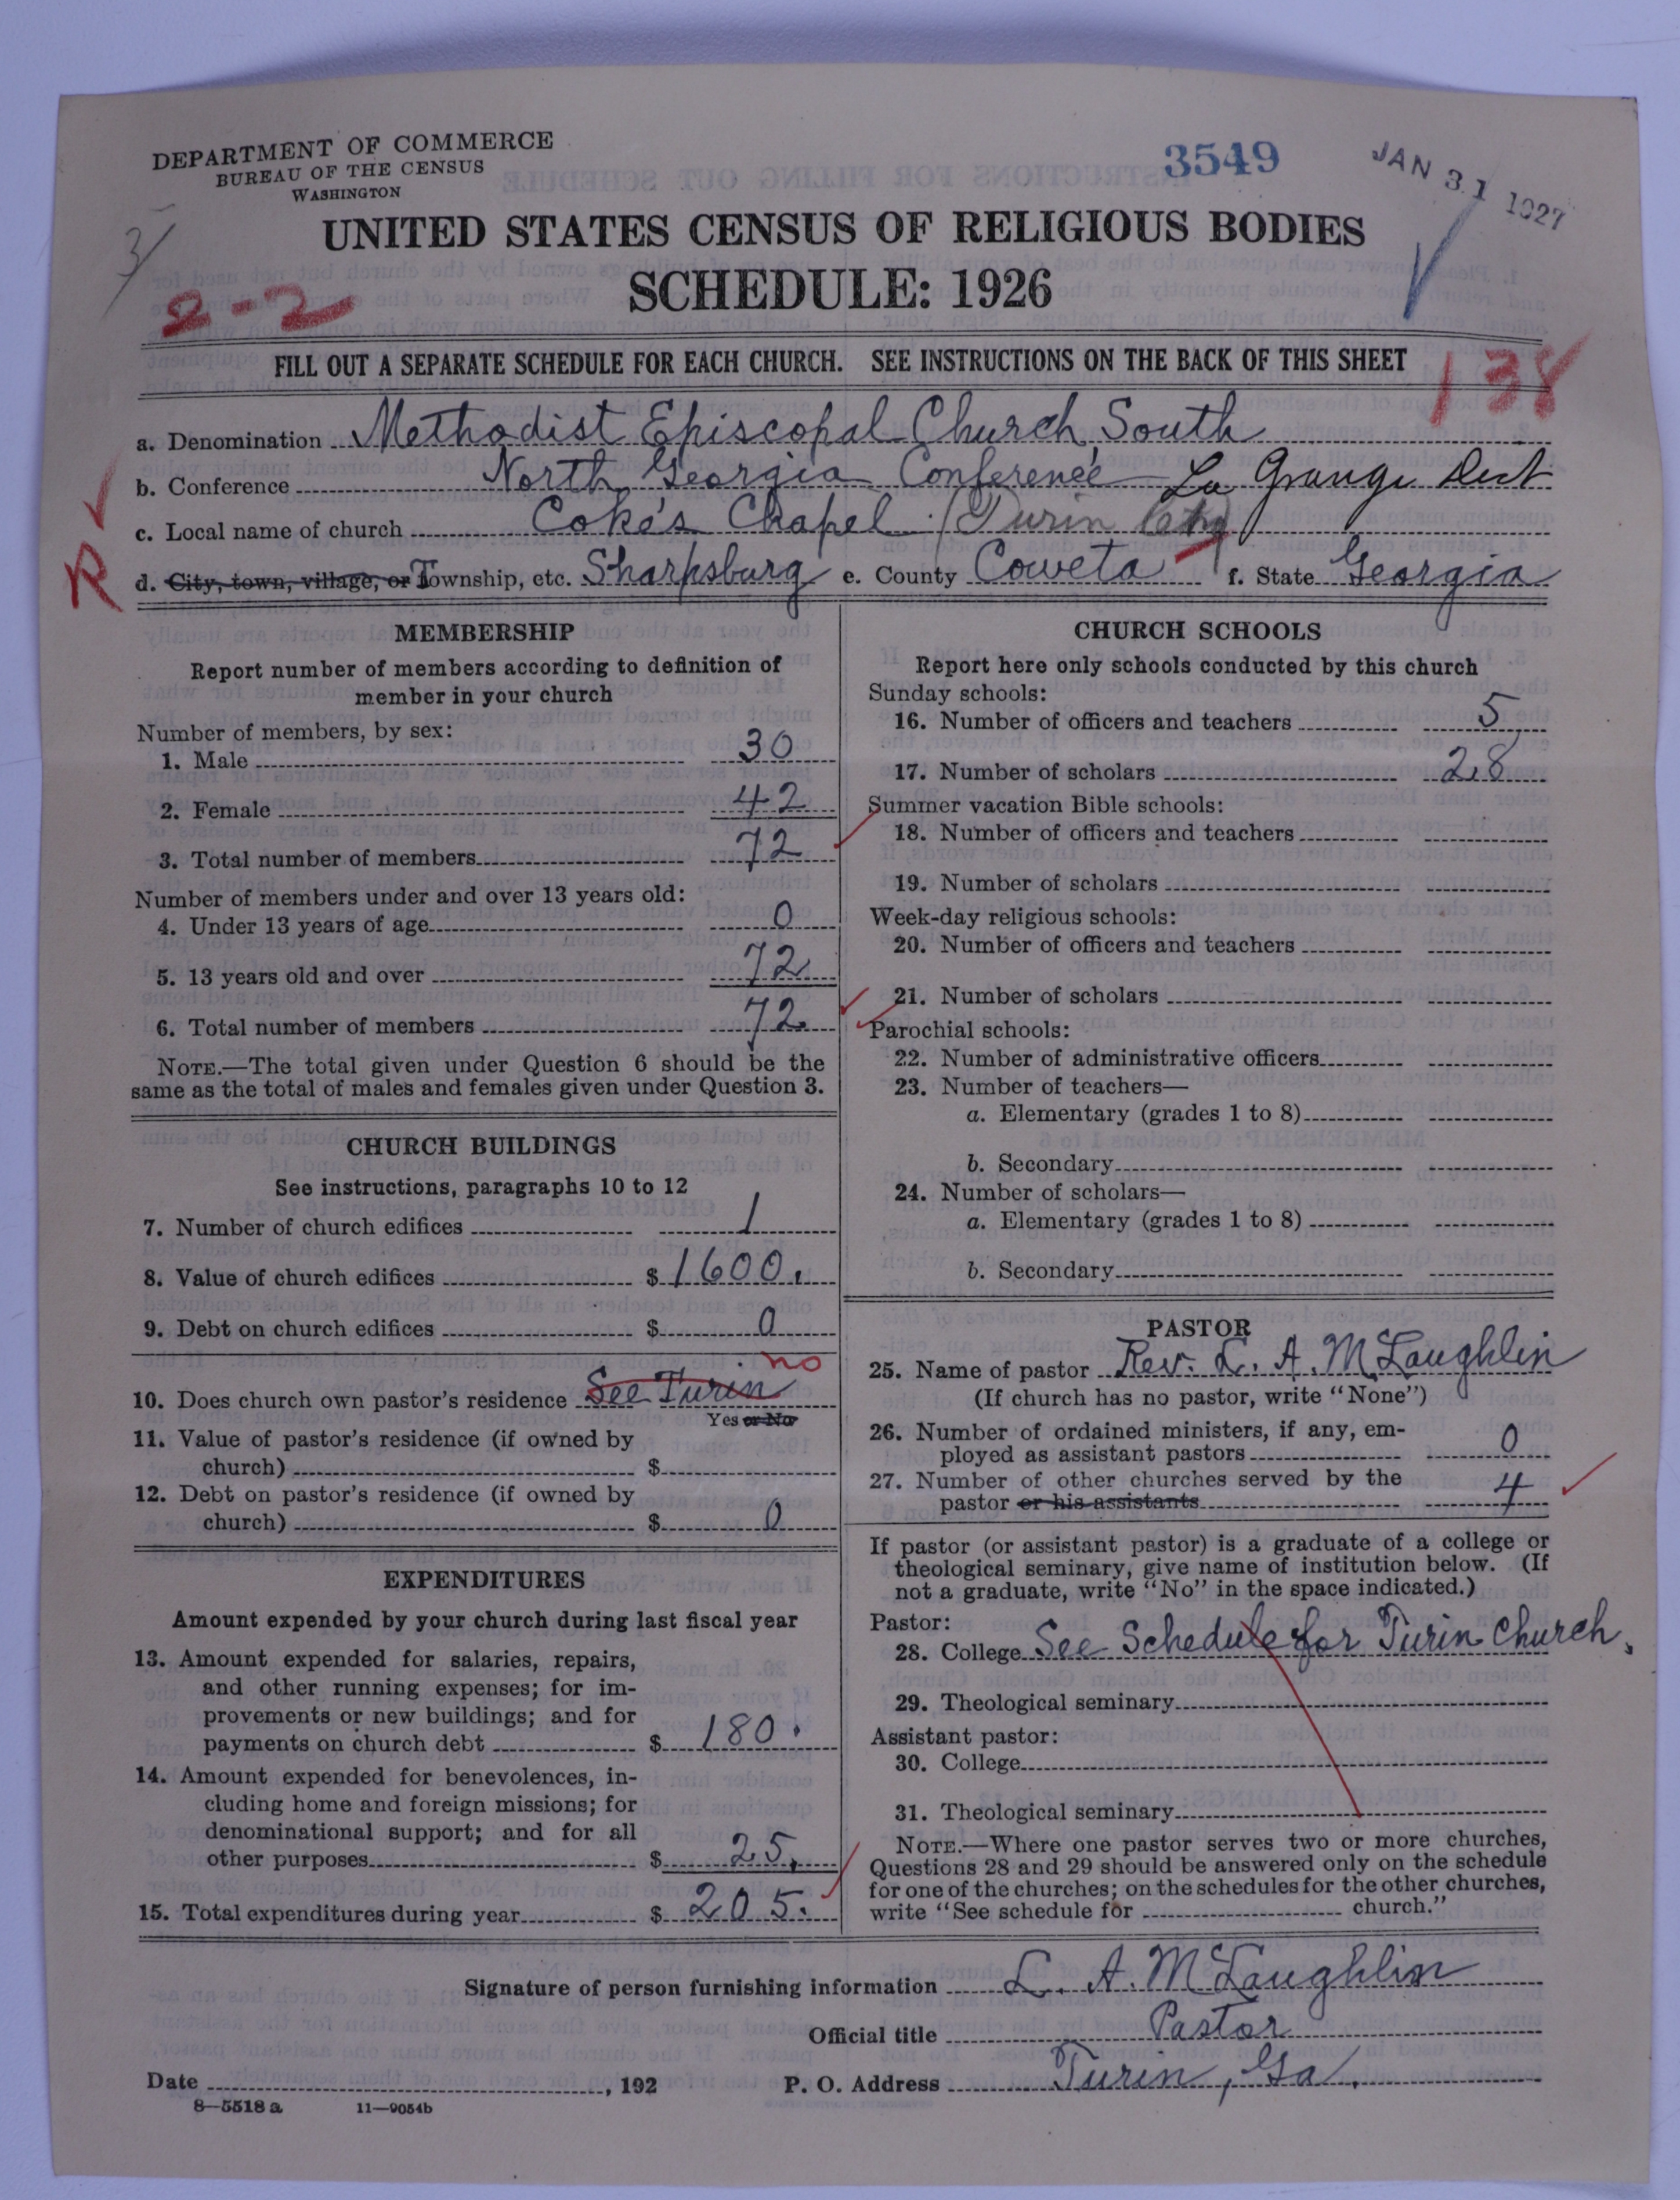 DEPARTMENT OF COMMERCE
BUREAU OF THE CENSUS
WASHINGTON
3549
JAN 31 1927
UNITED STATES CENSUS OF RELIGIOUS BODIES
SCHEDULE: 1926
2-2
138
FILL OUT A SEPARATE SCHEDULE FOR EACH CHURCH. SEE INSTRUCTIONS ON THE BACK OF THIS SHEET
a. Denomination Methodist Episcopal Church South
b. Conference North Georgia Conference La Grange Dist
c. Local name of church Coke's Chapel (Turin
R
d. City, town, village, or Township, etc. Sharpsburg e. County Coweta f. State Georgia
MEMBERSHIP
Report number of members according to definition of
member in your church
Number of members, by sex:
1. Male 30
2. Female 42
3. Total number of members 72
Number of members under and over 13 years old:
4. Under 13 years of age 0
5. 13 years old and over 72
6. Total number of members 72
NOTE.—The total given under Question 6 should be the
same as the total of males and females given under Question 3.
CHURCH BUILDINGS
See instructions, paragraphs 10 to 12
7. Number of church edifices 1
8. Value of church edifices $ 1600.
9. Debt on church edifices $ 0
no
10. Does church own pastor's residence See Turin
Yes or No
11. Value of pastor's residence (if owned by
church) $
12. Debt on pastor's residence (if owned by
church) $ 0
EXPENDITURES
Amount expended by your church during last fiscal year
13. Amount expended for salaries, repairs,
and other running expenses; for im-
provements or new buildings; and for
payments on church debt $ 180.
14. Amount expended for benevolences, in-
cluding home and foreign missions; for
denominational support; and for all
other purposes $ 25.
15. Total expenditures during year $ 205.
CHURCH SCHOOLS
Report here only schools conducted by this church
Sunday schools:
16. Number of officers and teachers 5
17. Number of scholars 28
Summer vacation Bible schools:
18. Number of officers and teachers
19. Number of scholars
Week-day religious schools:
20. Number of officers and teachers
21. Number of scholars
Parochial schools:
22. Number of administrative officers
23. Number of teachers—
a. Elementary (grades 1 to 8)
b. Secondary
24. Number of scholars—
a. Elementary (grades 1 to 8)
b. Secondary
PASTOR
25. Name of pastor Rev. L. A. McLaughlin
(If church has no pastor, write "None")
26. Number of ordained ministers, if any, em-
ployed as assistant pastors 0
27. Number of other churches served by the
pastor or his assistants 4
If pastor (or assistant pastor) is a graduate of a college or
theological seminary, give name of institution below. (If
not a graduate, write "No" in the space indicated.)
Pastor:
28. College See Schedule for Turin Church.
29. Theological seminary
Assistant pastor:
30. College
31. Theological seminary
NOTE.—Where one pastor serves two or more churches,
Questions 28 and 29 should be answered only on the schedule
for one of the churches; on the schedules for the other churches,
write "See schedule for church."
Signature of person furnishing information L. A. McLaughlin
Official title Pastor
Date , 192 P. O. Address Turin, Ga.
8—5518 a 11—9054b